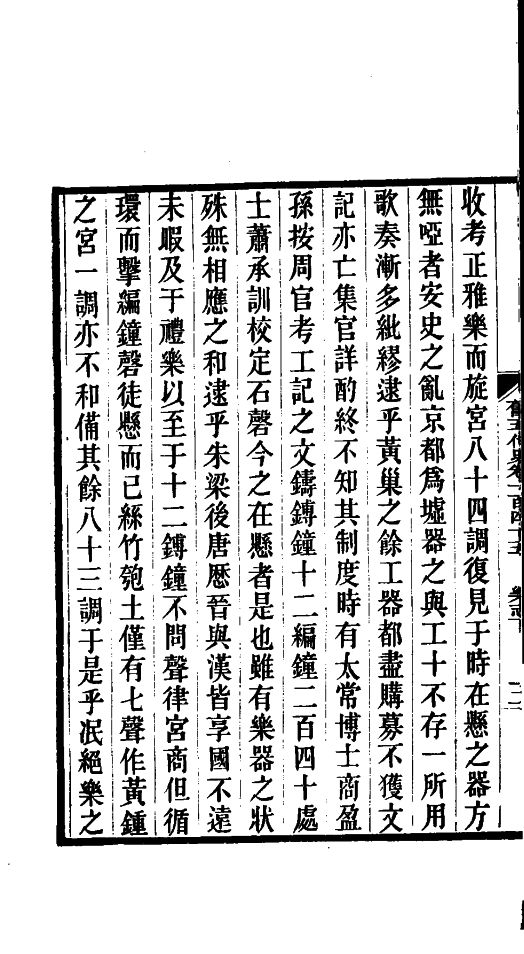 收考正雅樂而旋宮八十四調復見于時在懸之器方
無啞者安史之亂京都爲墟器之與工十不存一所用
歌奏漸多紕繆逮乎黃巢之餘工器都盡購募不獲文
記亦亡集官詳酌終不知其制度時有太常博士商盈
孫按周官考工記之文鑄鎛鐘十二編鐘二百四十處
士蕭承訓校定石磬今之在懸者是也雖有樂器之狀
殊無相應之和逮乎朱梁後唐歷晉與漢皆享國不遠
未暇及于禮樂以至于十二鎛鐘不問聲律宮商但循
環而擊編鐘磬徒懸而已絲竹匏土僅有七聲作黃鍾
之宮一調亦不和備其餘八十三調于是乎泯絕樂之